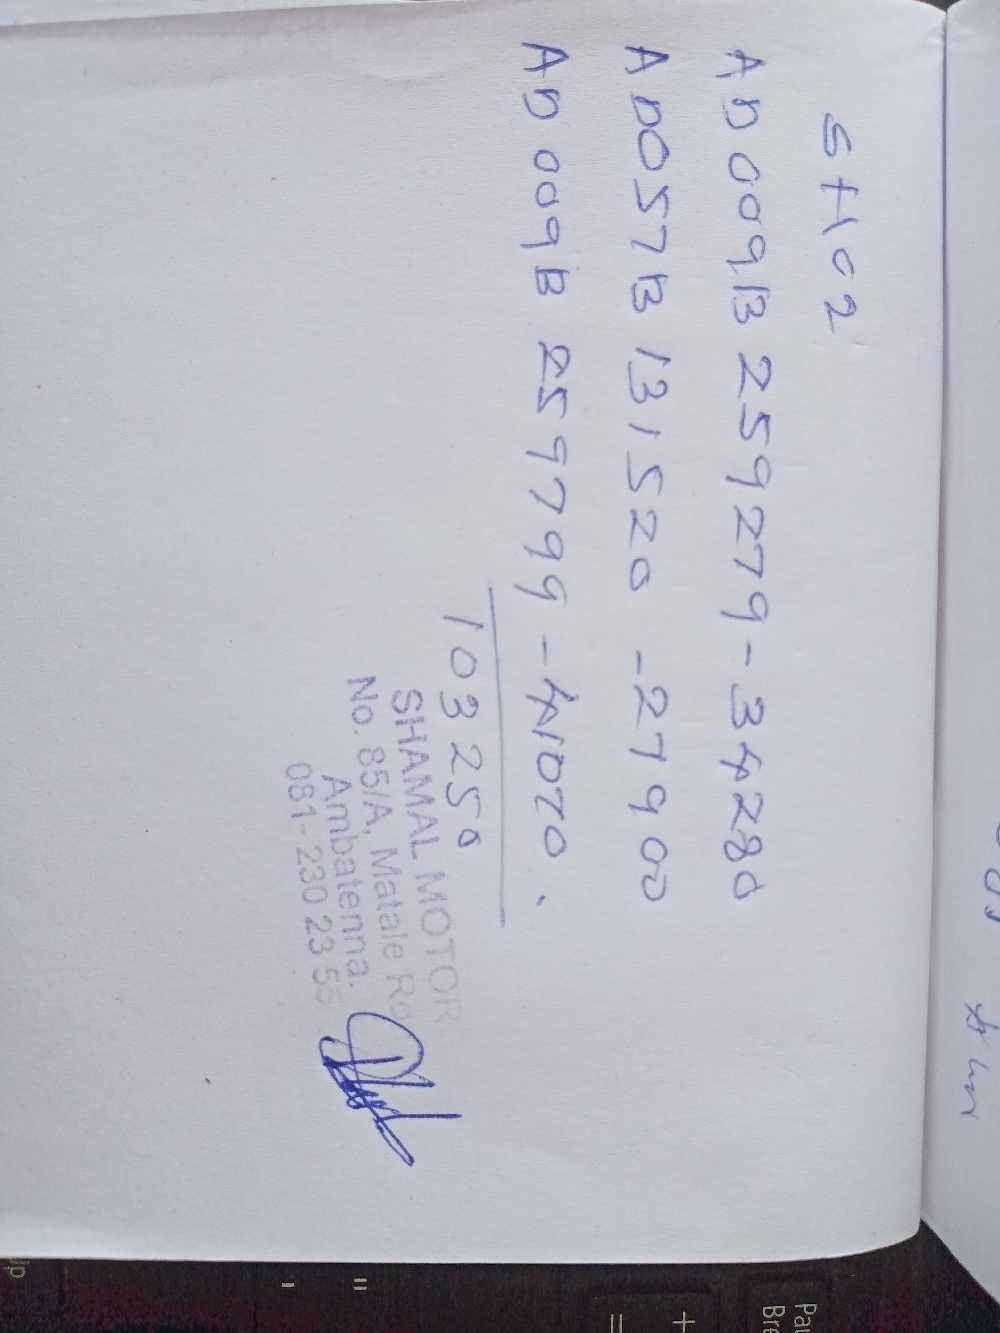 SH02
AD009B259279-34280
AD057B131520 -27900
AD009B 259799 -41070.
103250
SHAMAL MOTOR
No. 85/A, Matale Ro
Ambatenna.
081-230 23 55
Up
"
'
+
=
Pau
Bre